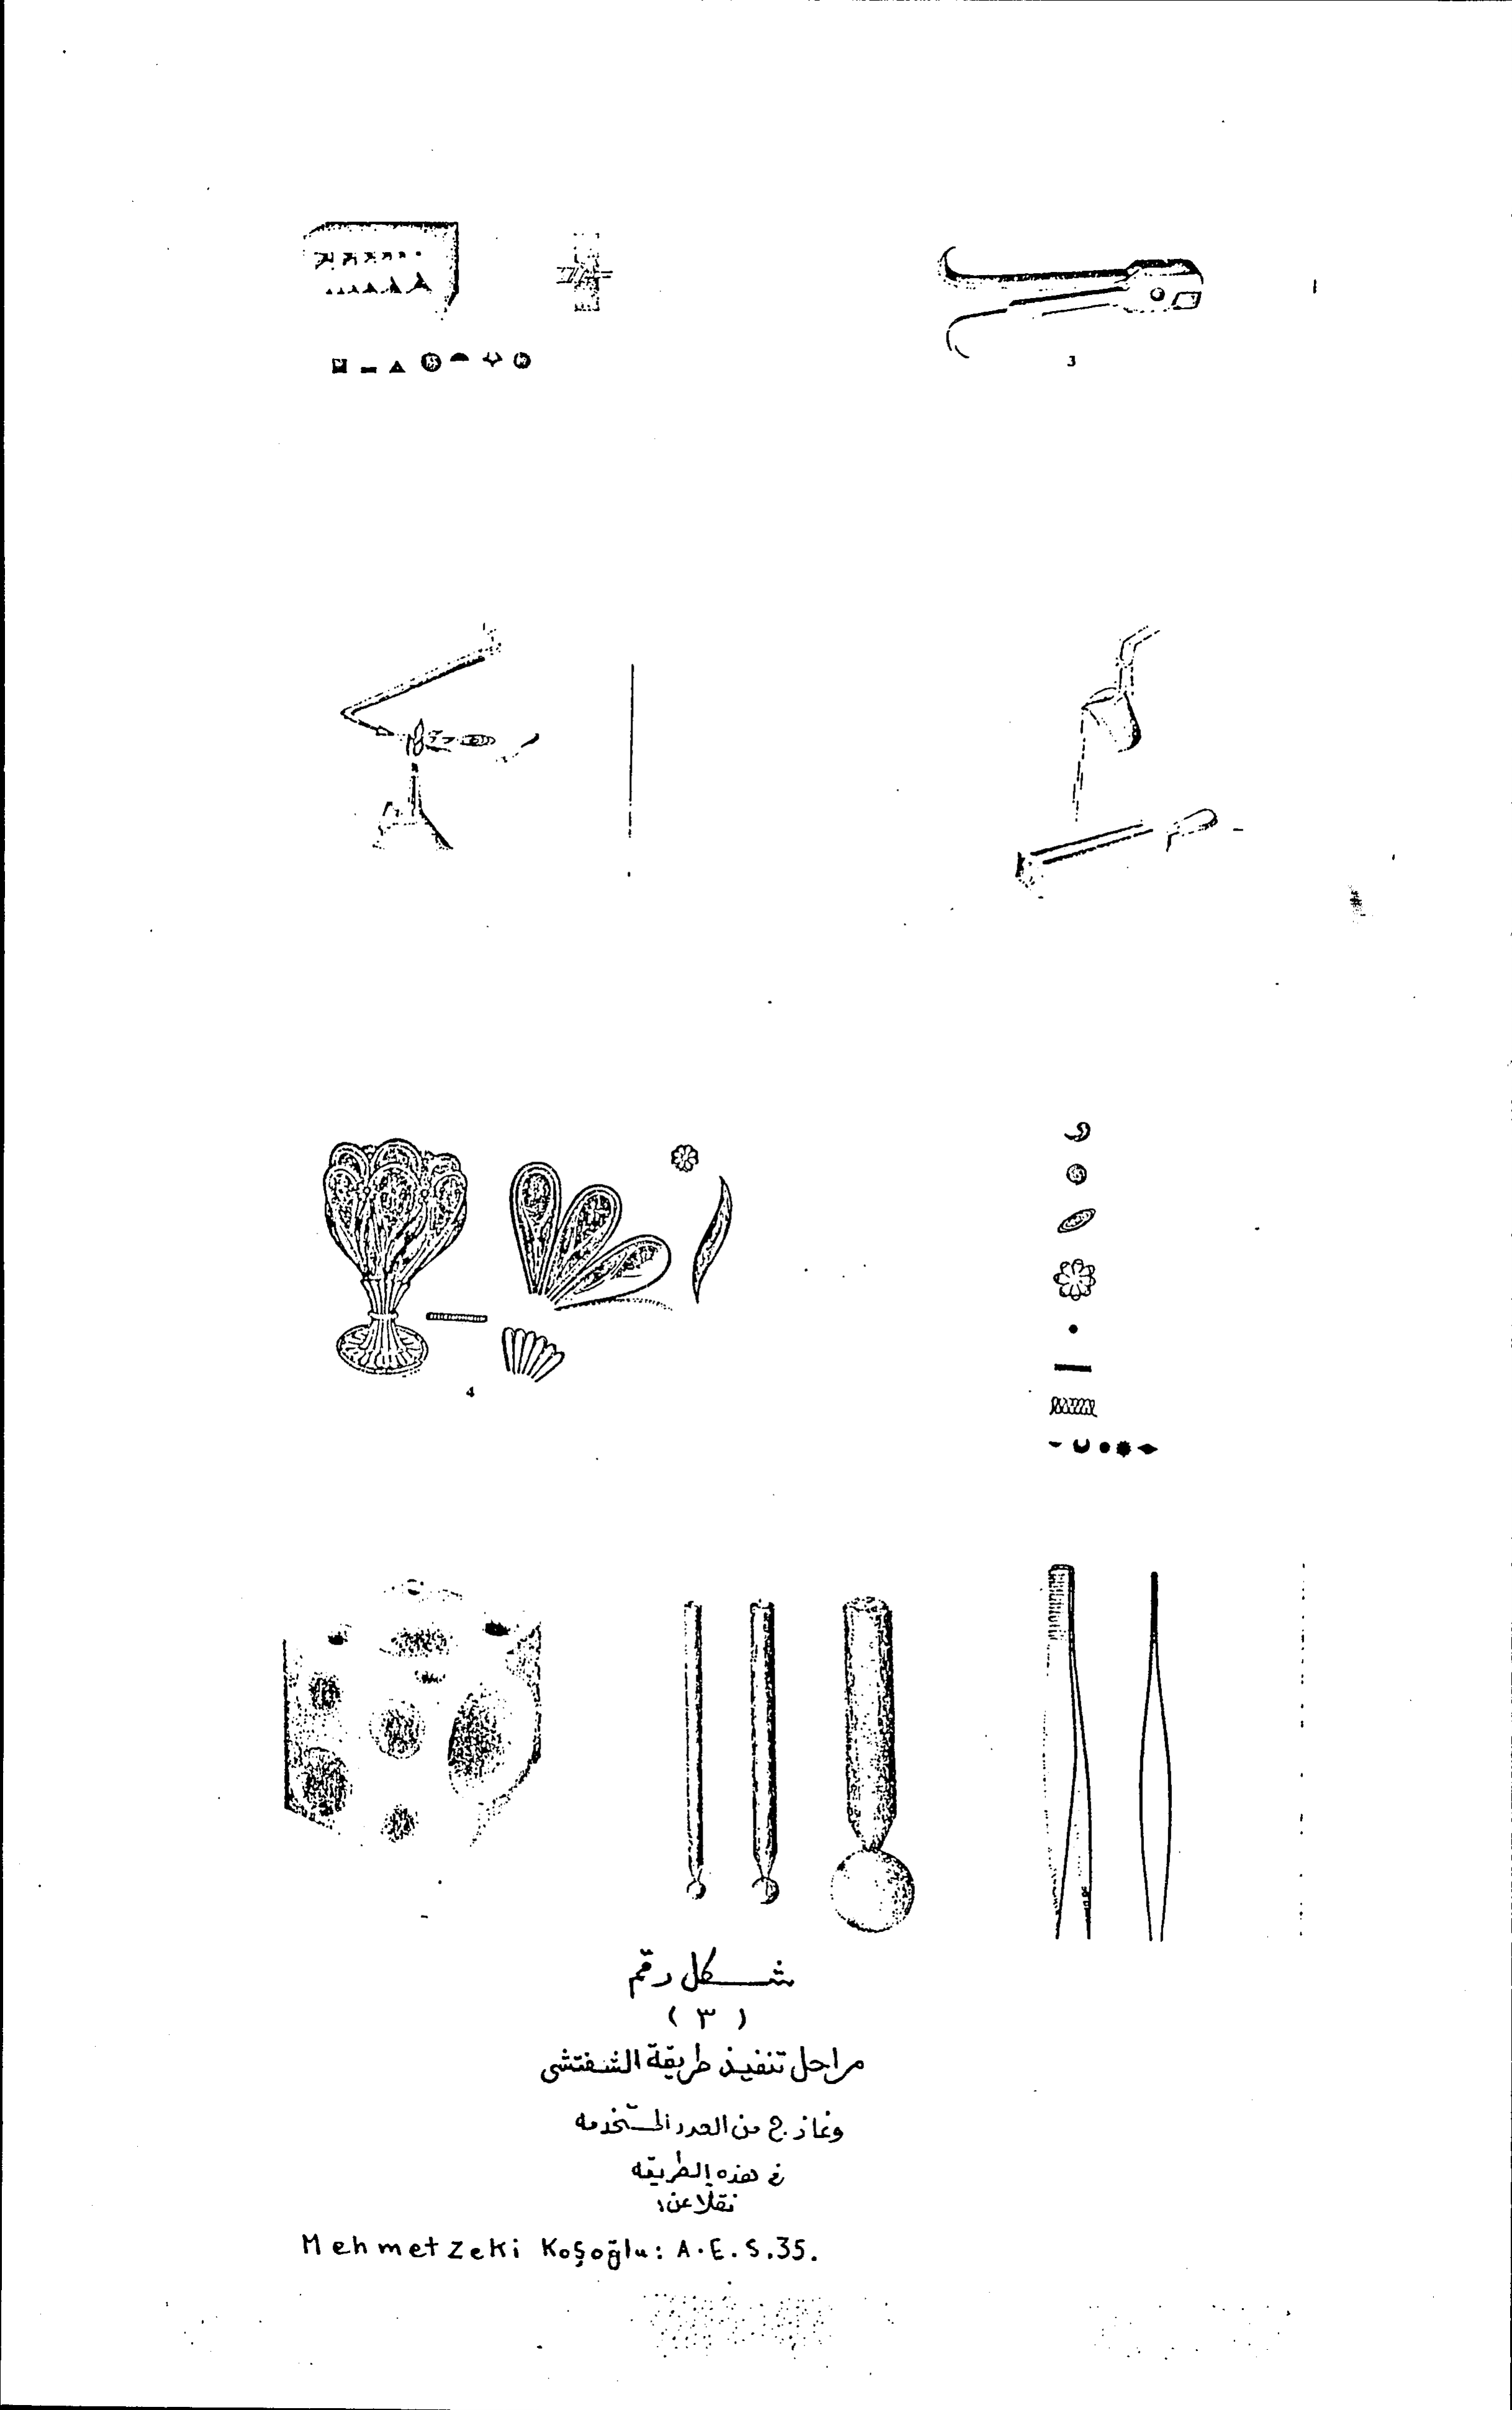 3
4
شكل رقم
( ٣ )
مراحل تنفيذ طريقة الشفتشى
ونماذج من العدد المستخدمه
في هذه الطريقه
نقلا عن:
Mehmet Zeki Koşoğlu: A.E.S.35.